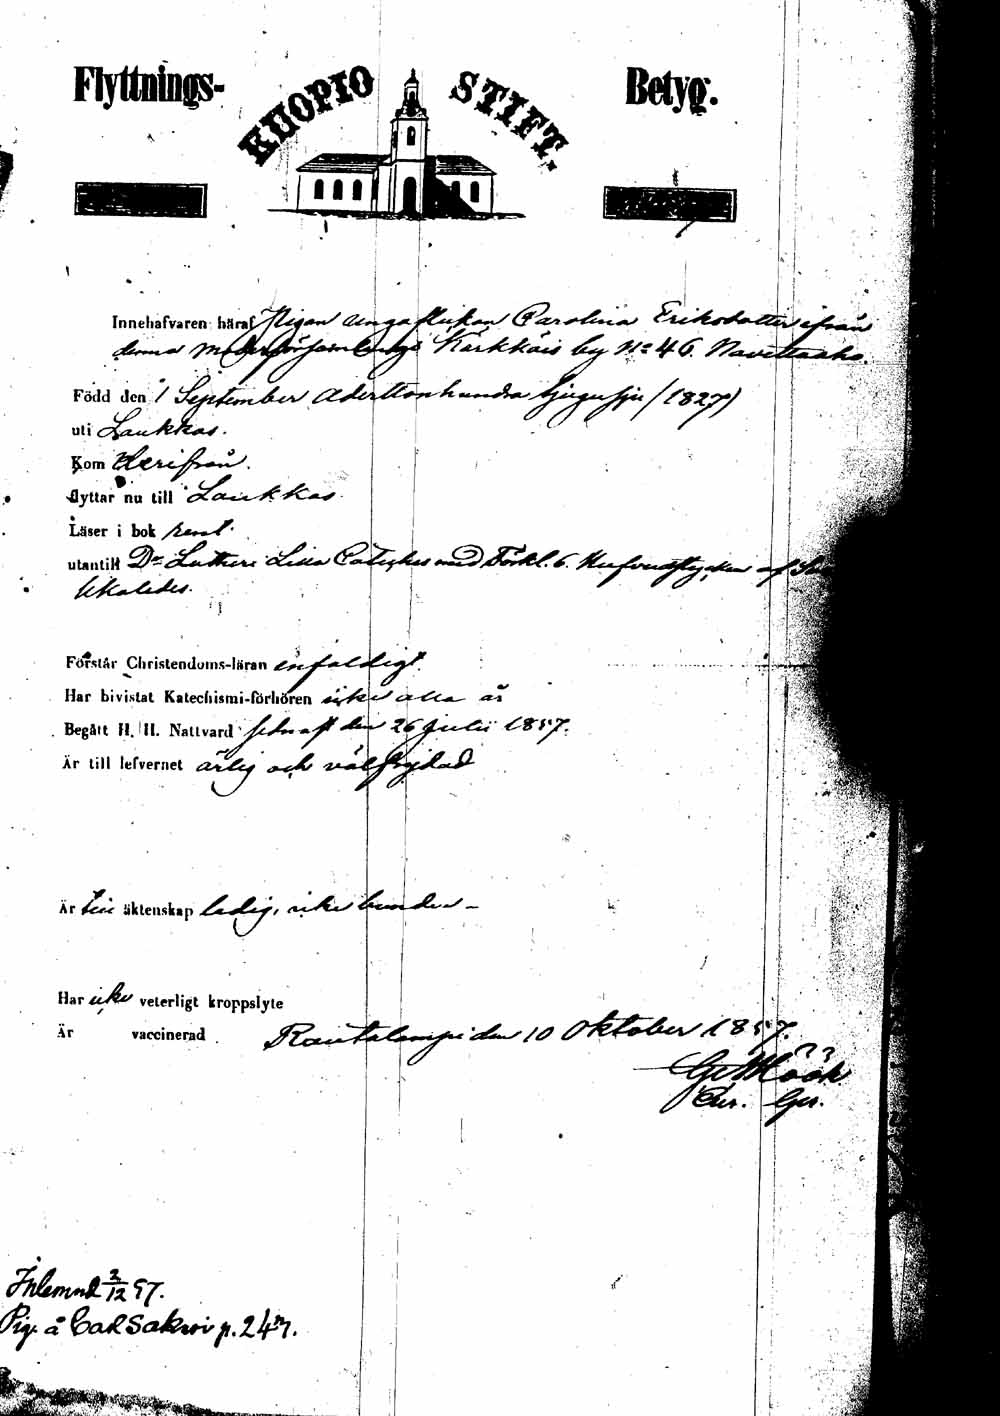 Flyttnings- KUOPIO STIFT. Betyg.
Innehafvaren häraf Pigan unga flickan Carolina Eriksdotter ifrån
denna Moderförsamlings Kärkkäis by No 46. Navettaaho.
Född den 1 September adertonhundra tjugusju (1827)
uti Laukkas.
Kom Herifrån.
flyttar nu till Laukkas.
Läser i bok rent.
utantill Dr Lutheri Lilla Cateches med Förkl. 6. Hufvudstycken af
likaledes.
Förstår Christendoms-läran enfaldigt.
Har bivistat Katechismi-förhören icke alla år
Begått H. H. Nattvard sednast den 26 Julii 1857.
Är till lefvernet ärlig och välfrejdad
Är till äktenskap ledig, icke bunden -
Har icke veterligt kroppslyte
Är vaccinerad Rautalampi den 10 Oktober 1857.
Höök
Inlemnd 2/12 57.
Pig. å